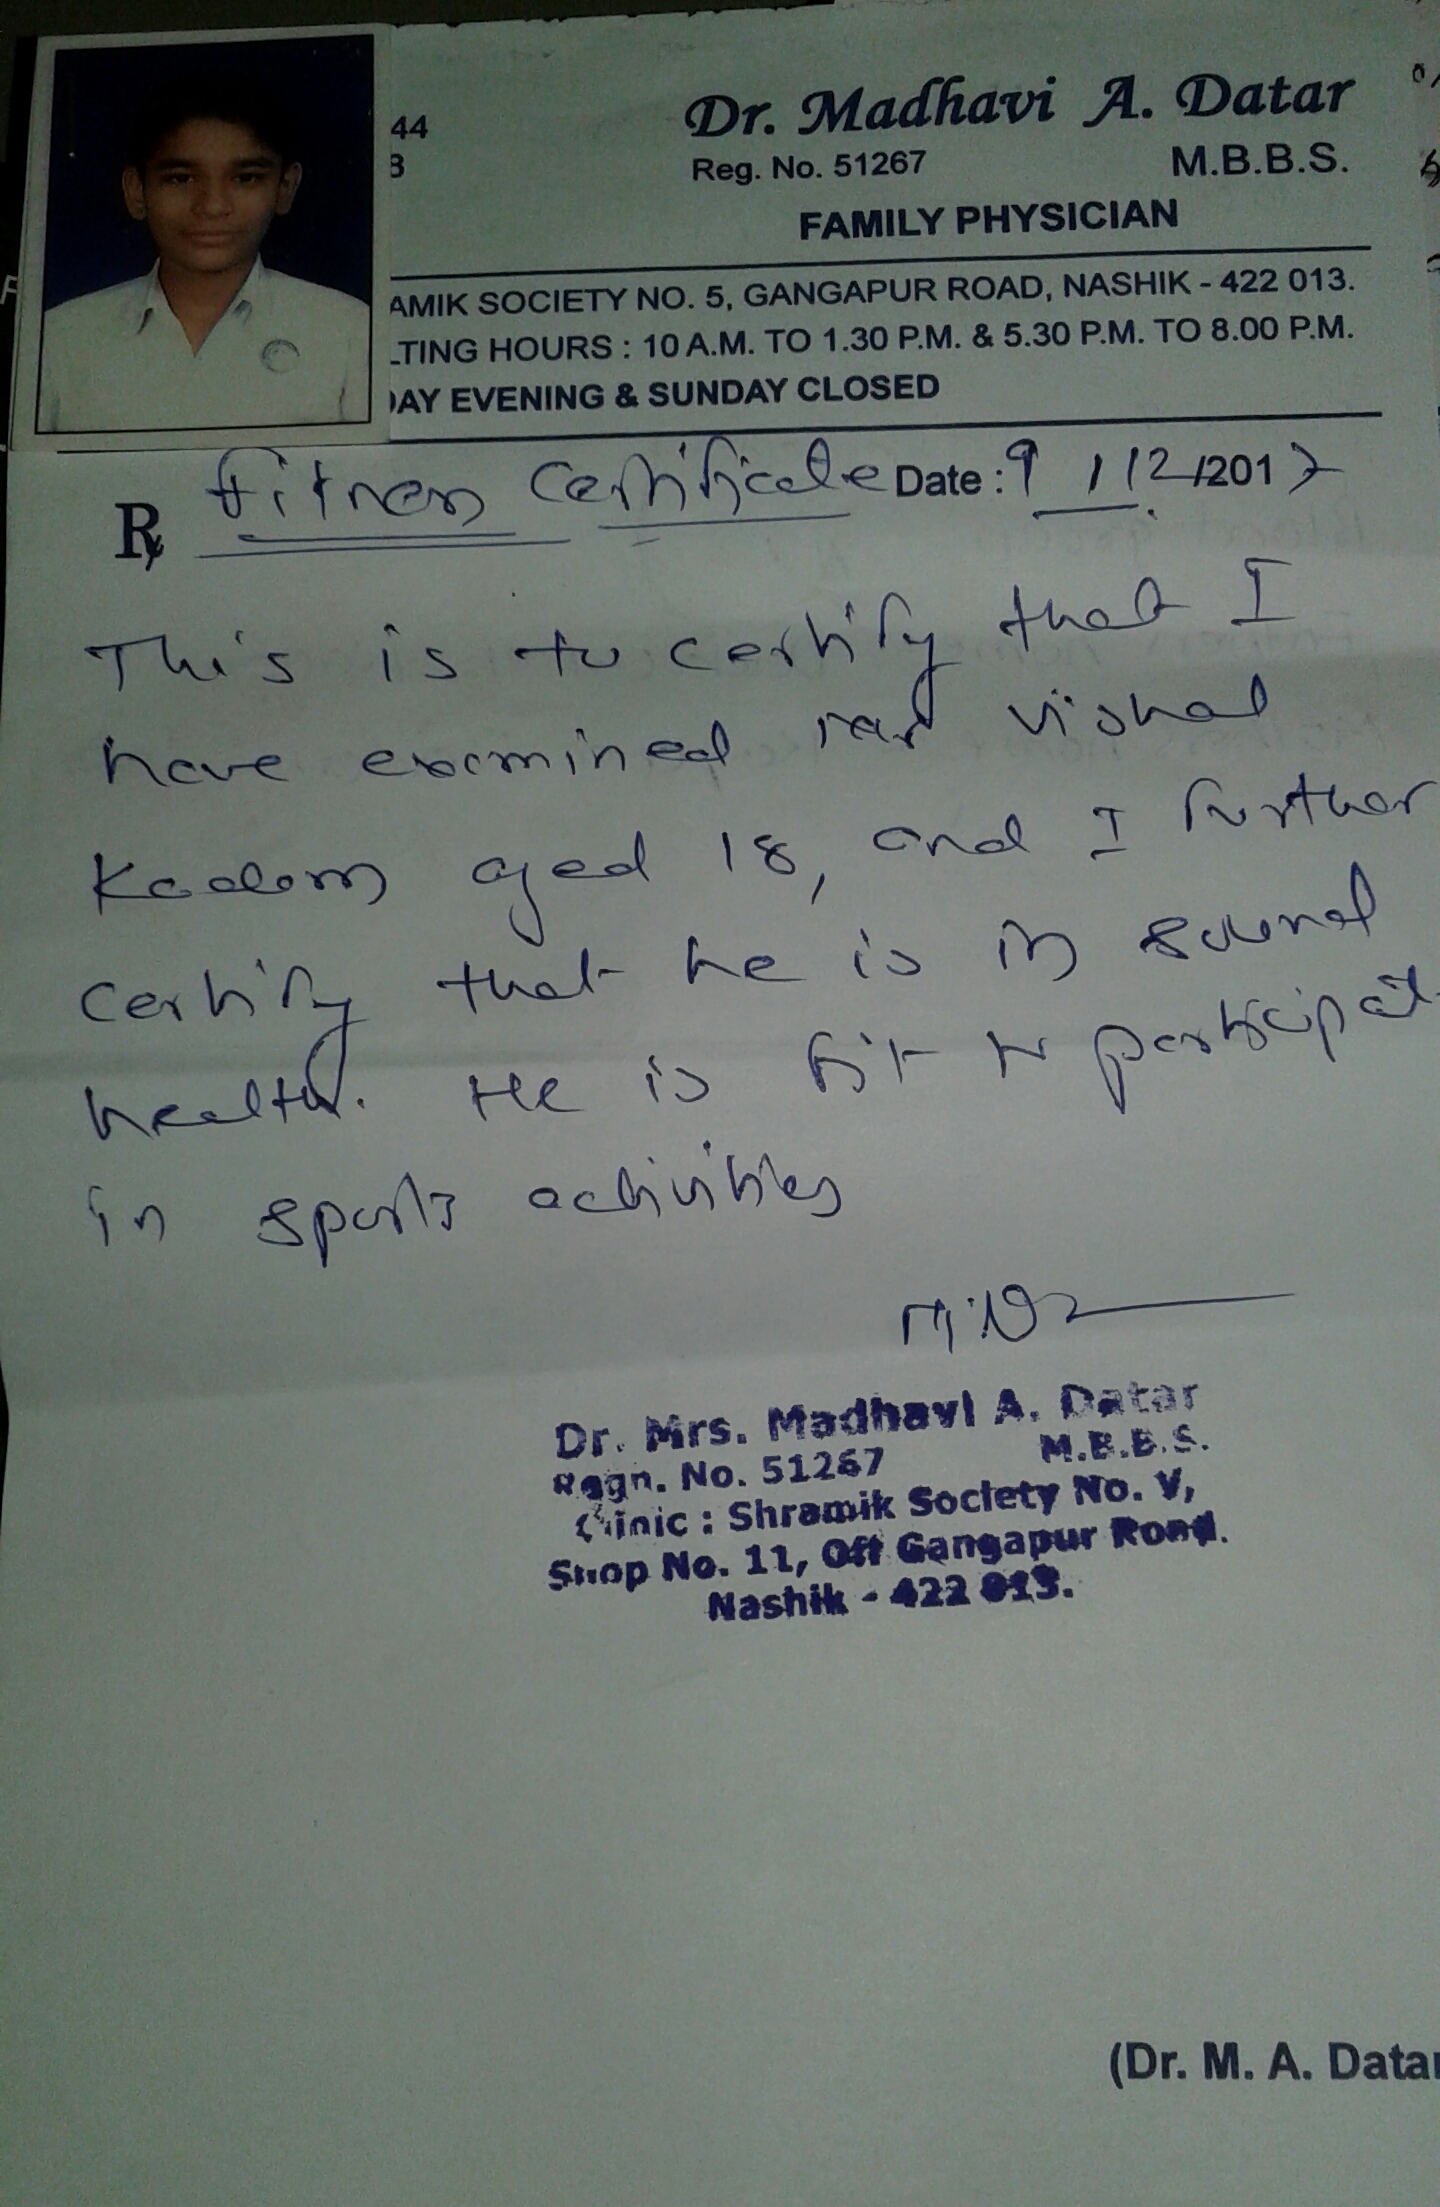 44
3
Dr. Madhavi A. Datar
Reg. No. 51267 M.B.B.S.
FAMILY PHYSICIAN
AMIK SOCIETY NO. 5, GANGAPUR ROAD, NASHIK - 422 013.
LTING HOURS : 10 A.M. TO 1.30 P.M. & 5.30 P.M. TO 8.00 P.M.
DAY EVENING & SUNDAY CLOSED
Fitness Certificate Date : 9 / 12 /2017
℞
This is to certify that I
have examined vishal
Kadam aged 18, and I further
certify that he is in sound
health. He is fit to participate
in sports activities
Dr. Mrs. Madhavi A. Datar
Regn. No. 51267 M.B.B.S.
Clinic : Shramik Society No. V,
Shop No. 11, Off Gangapur Road.
Nashik - 422 013.
(Dr. M. A. Datar